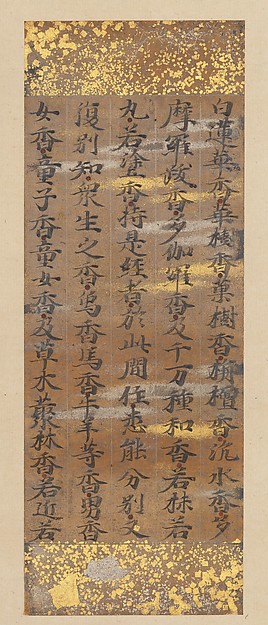 白蓮華香華樹香菓樹香栴檀香沉水香多
摩羅跋香多伽羅香及千万種和香若秣若
丸若塗香持是經者於此間住悉能分別又
復別知衆生之香鳥香馬香牛羊等香男香
女香童子香童女香及草木藂林香若近若